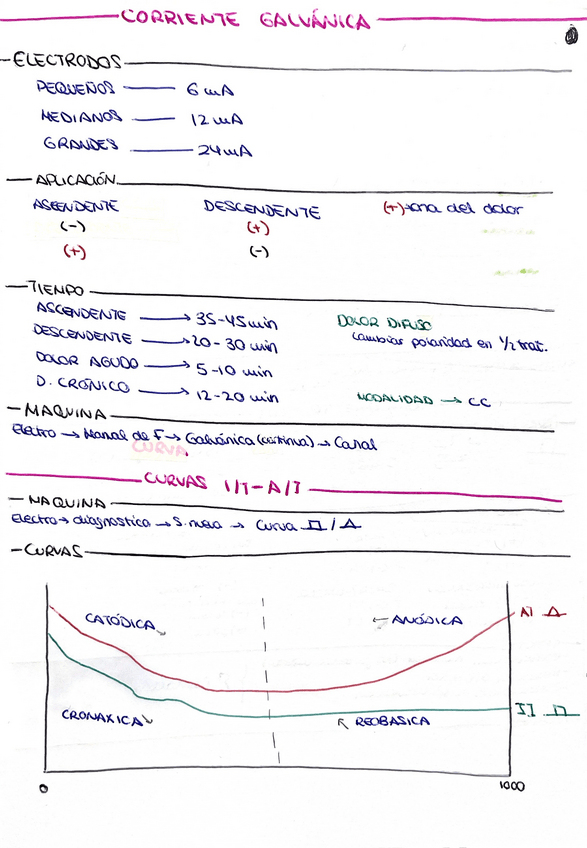 CORRIENTE GALVÁNICA
ELECTRODOS
PEQUEÑOS 6 mA
MEDIANOS 12 mA
GRANDES 24 mA
APLICACIÓN
ASCENDENTE DESCENDENTE (+) zona del dolor
(-) (+)
(+) (-)
TIEMPO
ASCENDENTE → 35-45 min
DESCENDENTE → 20-30 min
DOLOR AGUDO → 5-10 min
D. CRÓNICO → 12-20 min
DOLOR DIFUSO
Cambiar polaridad en 1/2 trat.
MODALIDAD → CC
MAQUINA
Electro → Manual de F → Galvánica (continua) → Canal
CURVA
CURVAS I/T-A/T
MAQUINA
Electro → diagnostica → S. musc → Curva ⊓ / Δ
CURVAS
CATÓDICA ← ANÓDICA AT Δ
CRONAXICA REOBASICA IT ⊓
0 1000